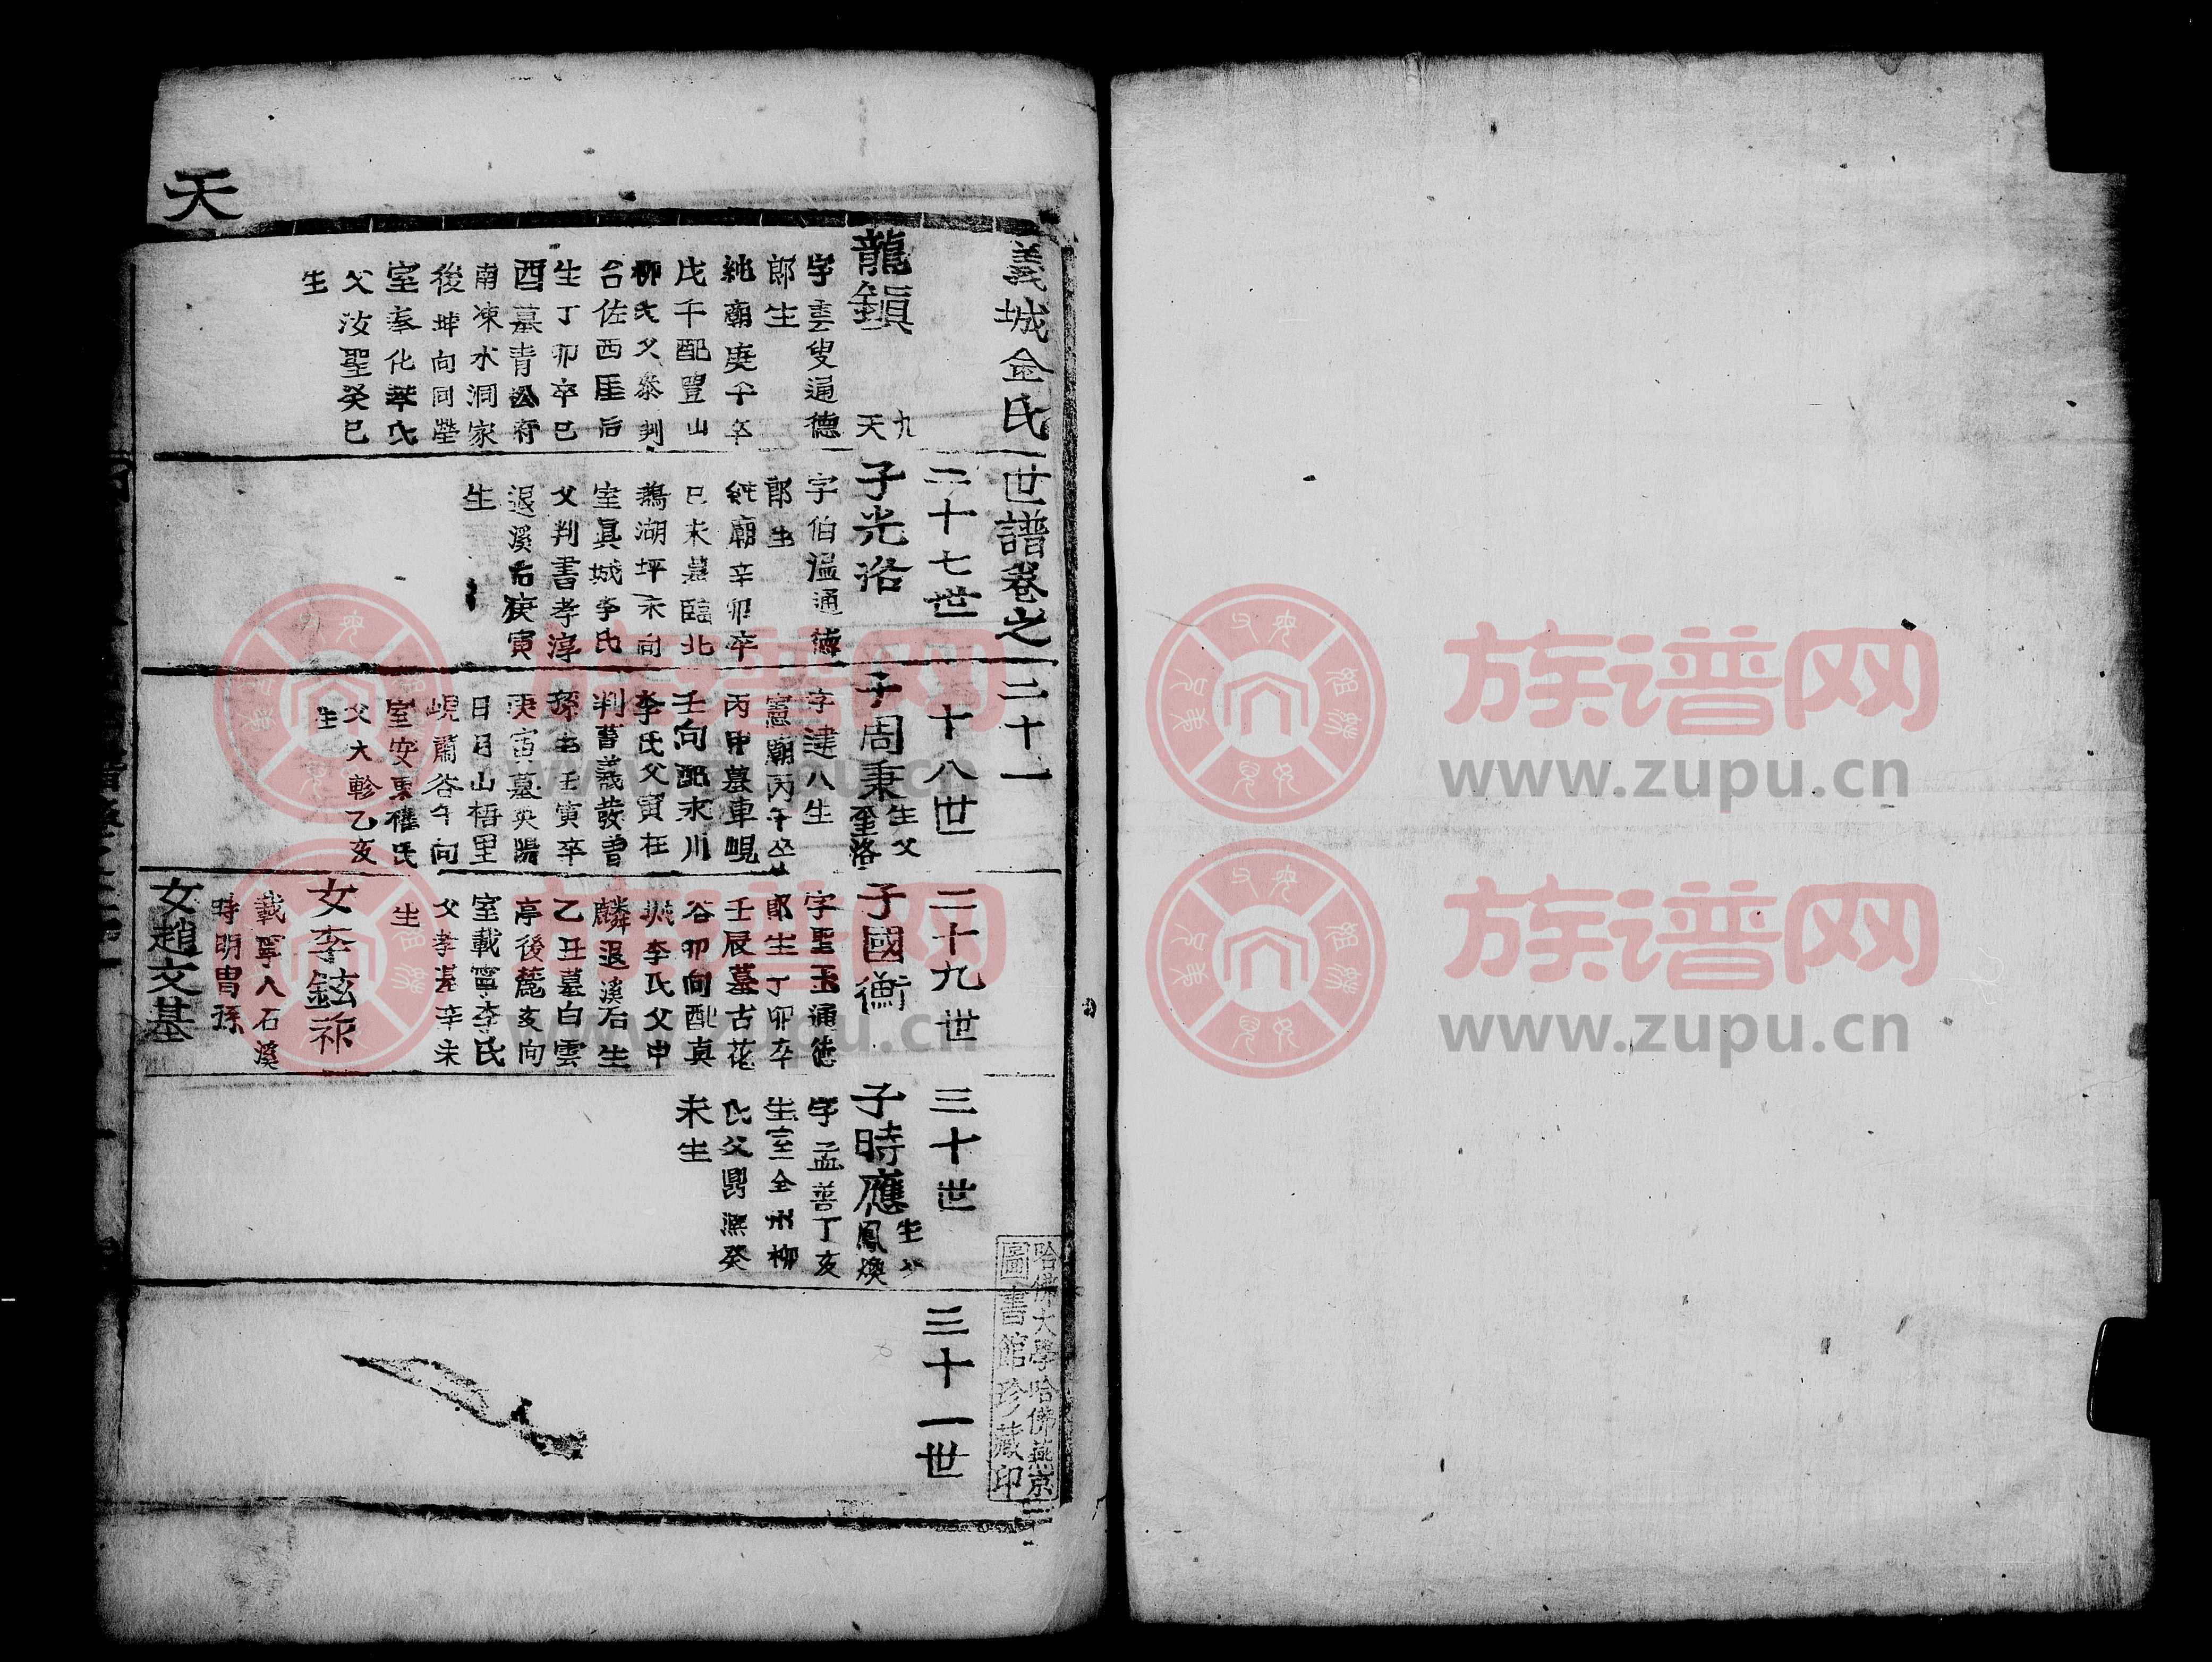 天
義城金氏世譜卷之二十一
龍鎭
九
天
字雲叟通德
郎生
純廟庚午卒
戊午配豐山
柳氏父泰判
台佐西厓后
生丁卯卒巳
酉墓青公府
南凍水洞家
後坤向同塋
室奉化李氏
父汝聖癸巳
生
二十七世
子光洛
字伯温通德
郎生
純廟辛卯卒
己未墓臨北
鵝湖坪未向
室眞城李氏
父判書孝淳
退溪后庚寅
生
二十八世
子周秉
生父
奎洛
字建八生
憲廟丙午卒
丙申墓車峴
壬向配永川
李氏父寅在
判書義發曾
孫生壬寅卒
庚寅墓英陽
日月山梧里
峴蕭谷午向
室安東權氏
父大軫乙亥
生
二十九世
子國衡
字聖玉通德
郎生丁卯卒
壬辰墓古花
谷卯向配真
城李氏父中
麟退溪后生
乙丑墓白雲
亭後麓亥向
室載寧李氏
父孝基辛未
生
女李鉉祚
載寧人石溪
時明胄孫
女趙文基
三十世
子時應
生父
鳳煥
字孟善丁亥
生室全州柳
氏父鼎熙癸
未生
三十一世
哈佛大學哈佛燕京
圖書館珍藏印
族谱网
www.zupu.cn
族谱网
www.zupu.cn
族谱网
www.zupu.cn
族谱网
www.zupu.cn